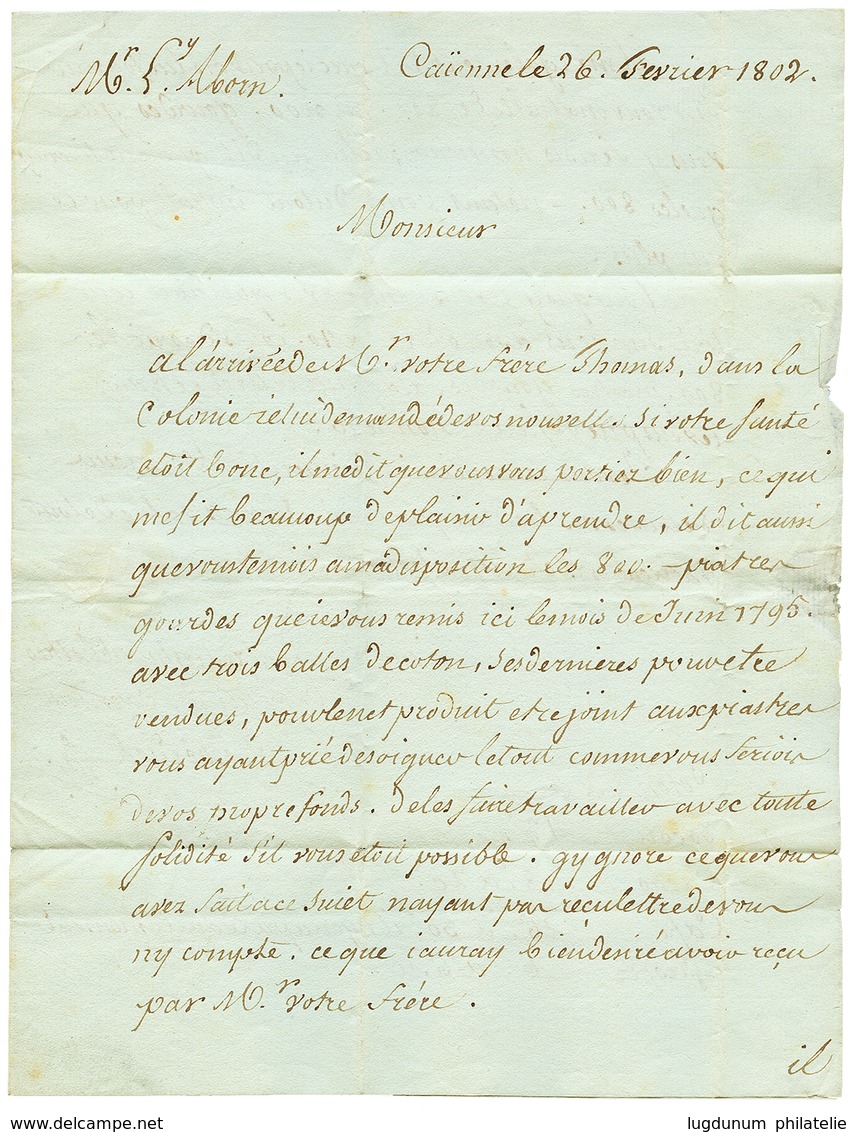 Mr. Ly. Aborn.
Caïenne le 26. fevrier 1802.
Monsieur
a l'arrivée de Mr. votre frére Thomas, dans la
Colonie ie lui demandé de vos nouvelles. Si votre santé
etoit bone, il me dit que vous vous portiez bien, ce qui
me fit beaucoup de plaisir d'aprendre, il dit aussi
que vous teniois a ma disposition les 800. piatres
gourdes que ie vous remis ici le mois de Juin 1795.
avec trois balles de coton, Ses dernières pour etre
vendues, pour le net produit etre joint aux piastres
vous ayant prié de soigner le tout comme vous feriois
de vos propre fonds. de les faire travailler avec toute
solidité s'il vous etoit possible. gygnore ce que vous
avez fait a ce suiet nayant pas reçu lettre de vous
ny compte. ce que iauray bien desiré avoir reçu
par Mr. votre frére.
il
lugdunum philatelie
www.delcampe.net